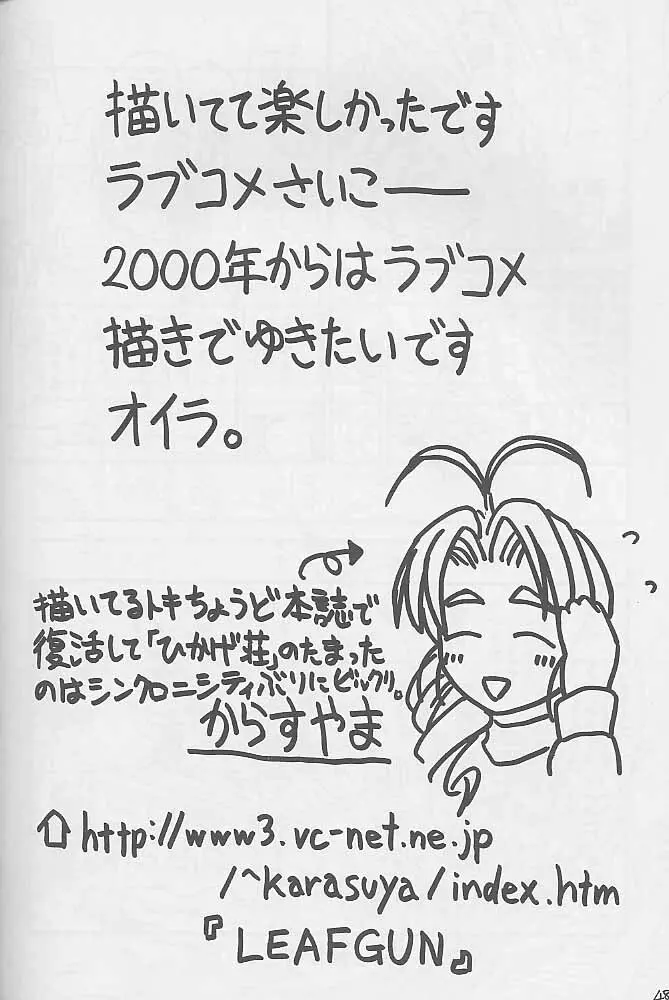 描いてて楽しかったです
ラブコメさいこ──
2000年からはラブコメ
描きでゆきたいです
オイラ。
描いてるトキちょうど本誌で
復活して「ひかげ荘」のたまった
のはシンクロニシティぶりにビックリ。
からすやま
http://www3.vc-net.ne.jp
/~karasuya/index.htm
『LEAFGUN』